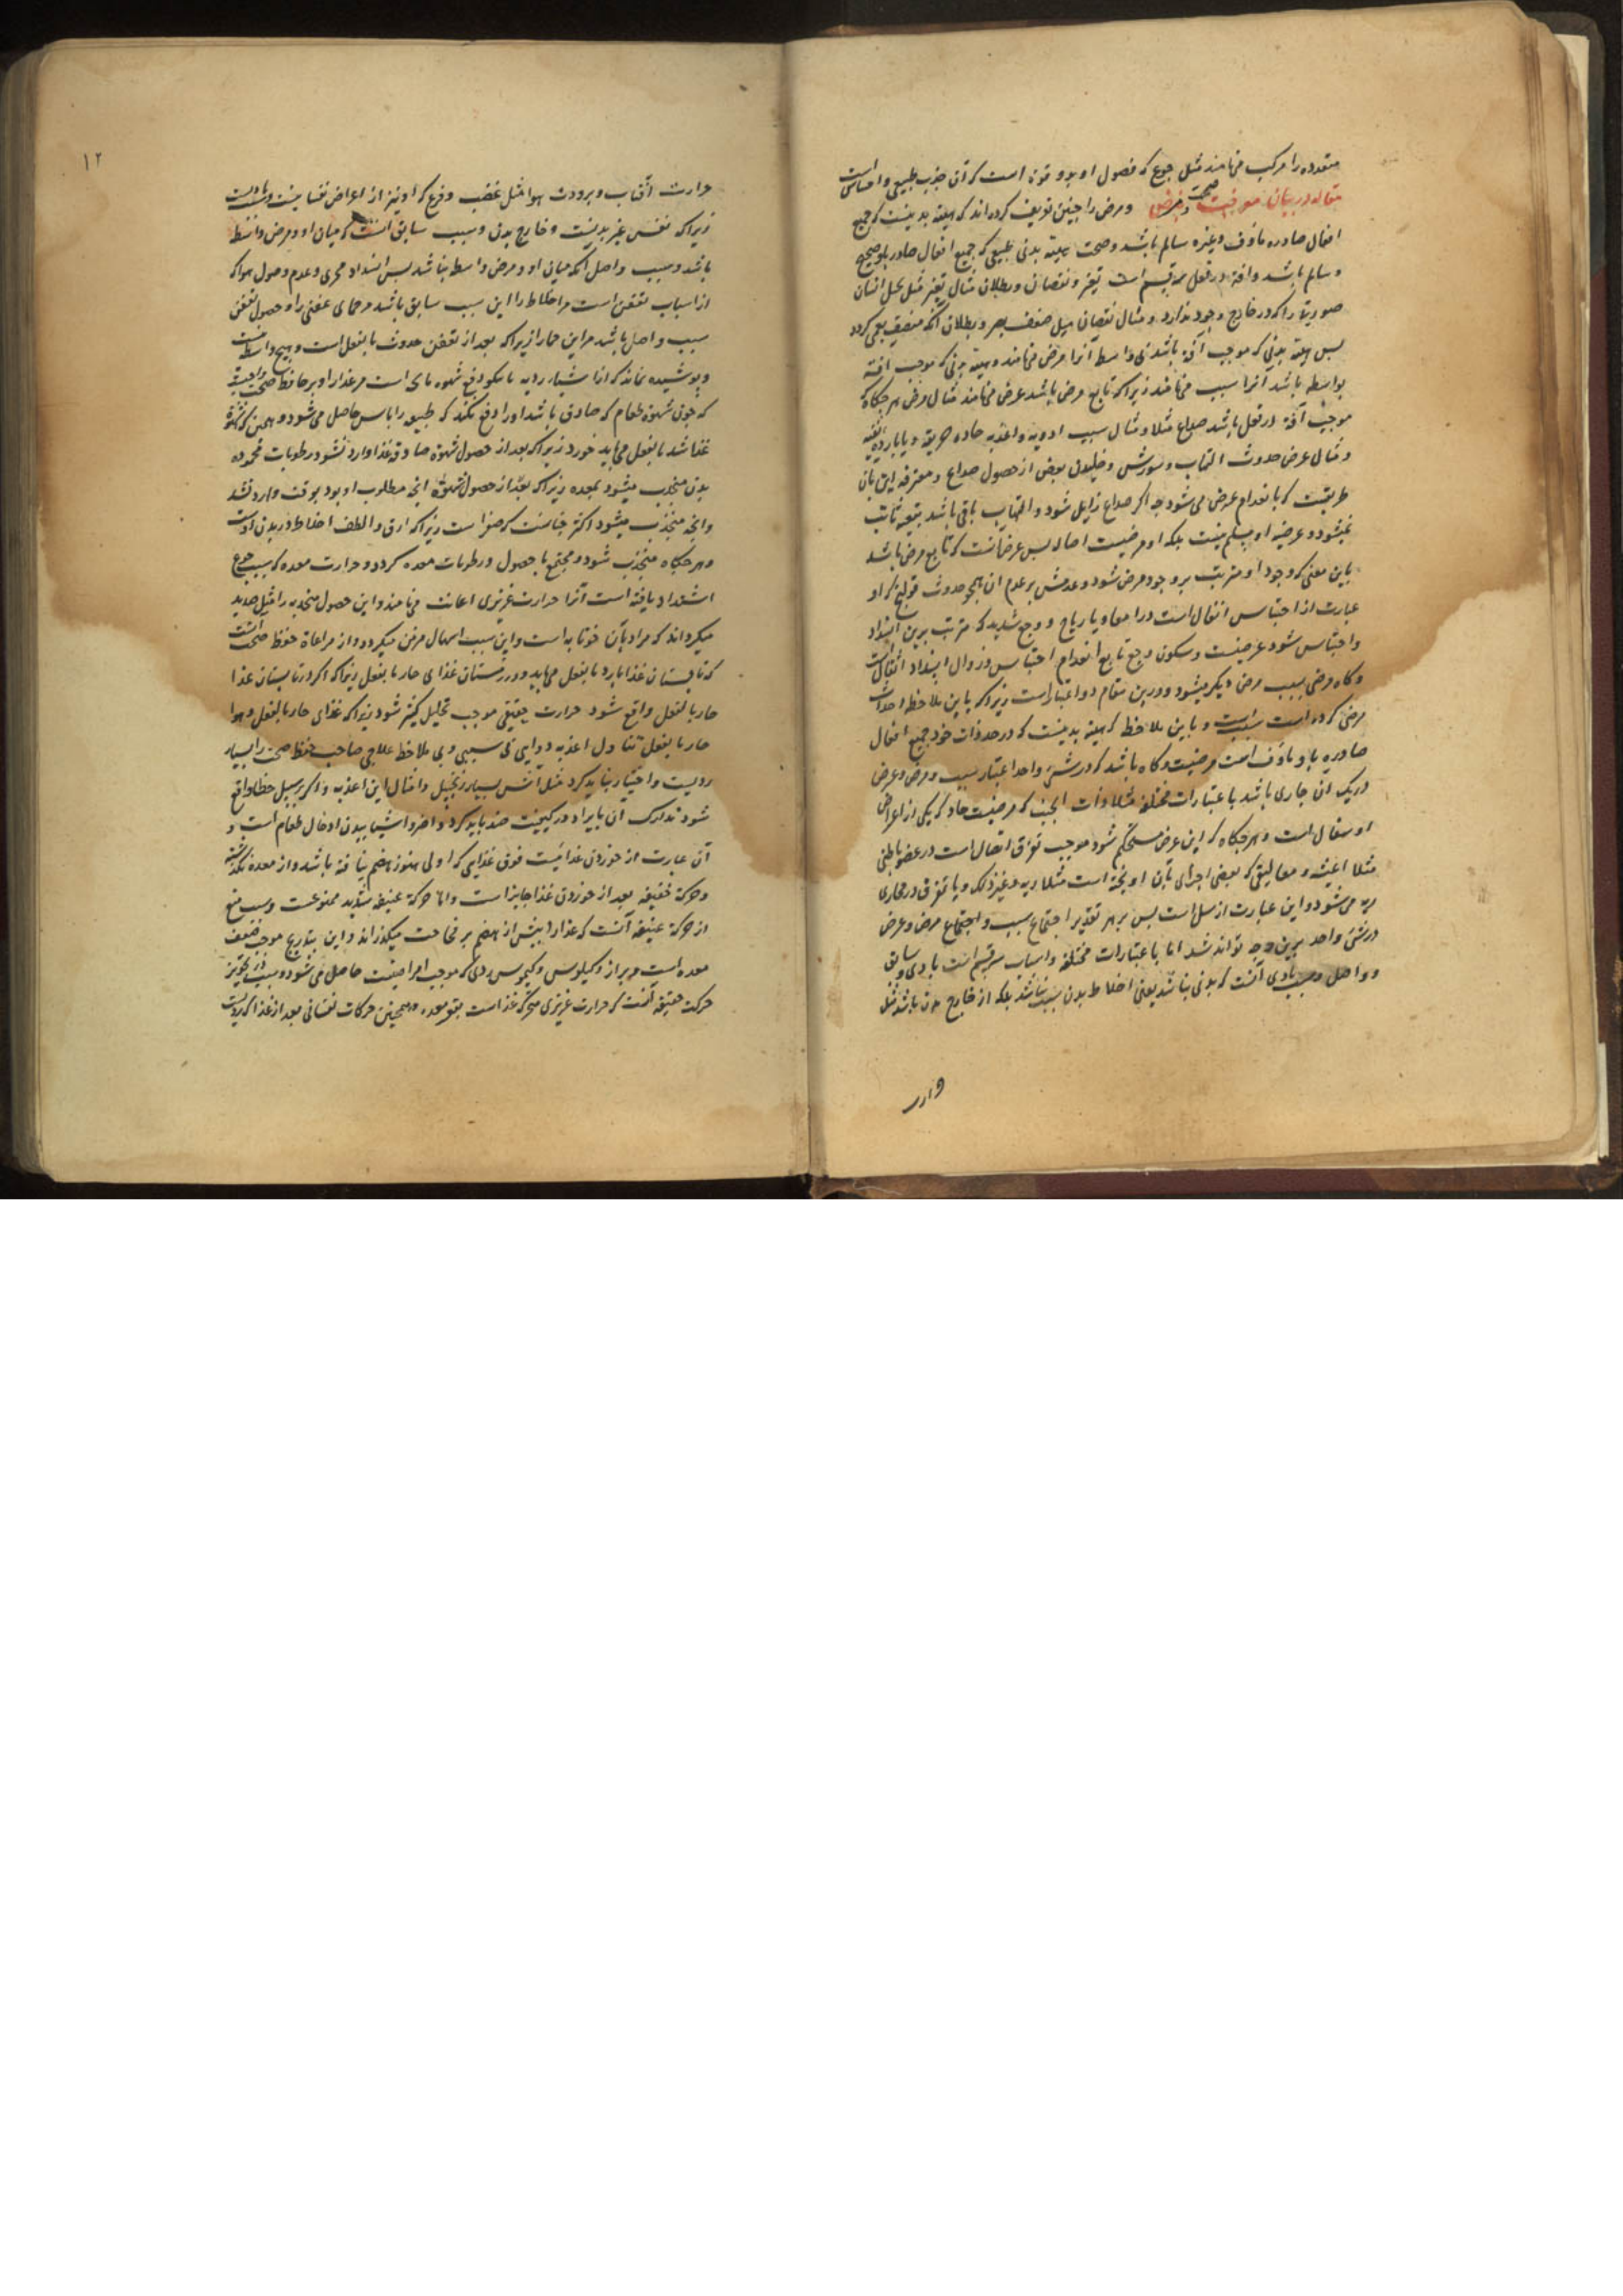 متعدده را مرکب می نامند مثل جوع که حصول او بدو قوة است که آن جذب طبیعی و احساس است
مقاله در بیان معرفت صحت و مرض و مرض را چنین تعریف کرده اند که هیئة بدنیست که جمیع
افعال صادره ماؤف و غیره سالم باشد و صحت هیئة بدنی طبیعی که جمیع افعال صادر باو صحیح
و سالم باشد و افة در فعل سه قسم است تغیر و نقصان و بطلان مثال تغیر مثل تخیل انسان
صورتی را که در خارج وجود ندارد و مثال نقصان مثل ضعف بصر و بطلان آنکه
پس هیئة بدنی که موجب آفة باشد بی واسطه آنرا مرض می نامند و هیئة بدنی که موجب افة
بواسطه باشد آنرا سبب می نامند زیرا که تابع مرض باشد عرض می نامند مثال مرض هر جکاه
موجب آفة در فعل باشد صداع مثلا و مثال سبب ادویه و اغذیه حاده حریفة و یا بارده
و مثال عرض حدوث التهاب و سوزش و بعض از حصول صداع و معترفه این بآن
طریقست که بانعدام عرض می شود چه اکر صداع زایل شود و التهاب باقی باشد
نمیشود و عرضیه او مسلم نیست بلکه او مرضیست اصاله پس عرض آنست که تابع مرض باشد
باین معنی که وجود او مترتب بر وجود مرض شود و عدمش بر عدم ان همچو حدوث قولنج که او
عبارت از احتباس اثفال است در امعا و یا ریاح و وجع شدید که مترتب برین انسداد
و احتباس شود عرضیست و سکون وجع تابع انعدام احتباس و زوال انسداد اثفال است
و کاه مرضی سبب مرض دیکر میشود و درین مقام دو اعتبار است زیرا که باین ملاحظه احداث
مرضی کرده است سببست و باین ملاحظه که هیئة بدنیست که در حد ذات خود جمیع افعال
صادره باو ماؤف است مرضیست و کاه باشد که در شئ واحد اعتبار سبب و مرض و عرض
در یک آن جاری باشد باعتبارات مختلفه مثلا ذات الجنب که مرضیست حاد که یکی از اعراض
او سعال است و هر جکاه که این عرض مستحکم شود موجب تفرق اتصال است در عضو باطنی
مثلا اغشیه و معالیقی که بعضی اجزای بآن اویخته است مثلا ریه و غیر ذلک و یا تفرق در مجاری
ریه می شود و این عبارت از سل است پس بر هر تقدیر اجتماع سبب و اجتماع مرض و عرض
در شئ واحد برین وجه تواند شد اما باعتبارات مختلفه و اسباب سه قسم است بادی و سابق
و واصل و سبب بادی آنست که بدنی نباشد یعنی اخلاط بدن سبب نباشد بلکه از خارج بدن باشد مثل
۱۲
حرارت آفتاب و برودت هوا مثل غضب و فزع که او نیز از اعراض نفسانیست
زیرا که نفس غیر بدنیست و خارج بدن و سبب سابق آنست که میان او و مرض واسطه
باشد و سبب واصل آنکه میان او و مرض واسطه نباشد پس انسداد مجری و عدم وصول هوا که
از اسباب تعفن است مر اخلاط را این سبب سابق باشد مر حمای عفنی را و حصول تعفن
سبب واصل باشد مر این حمار ازیرا که بعد از تعفن حدوث بالفعل است و هیچ واسطه نیست
و پوشیده نماند که از اشیاء ردیه دفع شهوه است مر غذا را و بر حافظ صحت واجب
که چون شهوة طعام که صادق باشد او را دفع نکند که طبیعه را یاس حاصل می شود و همین که
غذا شد بالفعل می باید خورد زیرا که بعد از حصول شهوة صادقه غذا وارد نشود رطوبات محموده
بدن منجذب میشود بمعده زیرا که بعد از حصول شهوة انچه مطلوب او بود بوقت وارد نشد
وانچه منجذب میشود اکثر که صفراست زیرا که ارق و الطف اخلاط در بدن اوست
و هر جکاه منجذب شود و مجتمع با حصول و رطوبات معده کردد و حرارت معده که سبب جوع
اشتداد یافته است آنرا حرارت غریزی اعانت می نامند و این حصول منجذبه را مثل صدید
میکرداند که مراد بآن خوتابه است و این سبب اسهال مرض میکردد و از مراعاة حفظ صحت آنست
که تابستان غذا بارد بالفعل می باید و در زمستان غذای حار بالفعل زیرا که اکر در تابستان غذا
حار بالفعل واقع شود حرارت حقیقی موجب تحلیل کثیر شود زیرا که غذای حار بالفعل و هوا
حار بالفعل تناول اغذیه دوایی بی سببی و بی ملاحظه علاجی صاحب حفظ صحت را بسیار
ردیست و اختیار نباید کرد مثل آش بسیار زنجبیل و امثال این اغذیه و اکر بر سبیل خطا واقع
شود تدارک آن بایراد در کیفیت ضد باید کرد و اضر اشیا ببدن ادخال طعام است و
آن عبارت از خوردن غذائیست فوق غذایی که اولی هنوز هضم نیافته باشد و از معده نکذشته
و حرکة خفیفه بعد از خوردن غذا جایز است و اما حرکة عنیفه شدید ممنوعست و سبب منع
از حرکة عنیفه آنست که غذا را پیش از هضم بر فجاجت میکذراند و این بتدریج موجب ضعف
معده است و براز و کیلوس و کیموس ردی که موجب امراضست حاصل می شود و سبب تجویز
حرکت خفیفه آنست که حرارت غریزی متحرکه غذا است بقعر معده و همچنین حرکات نفسانی بعد از غذا که ردیست